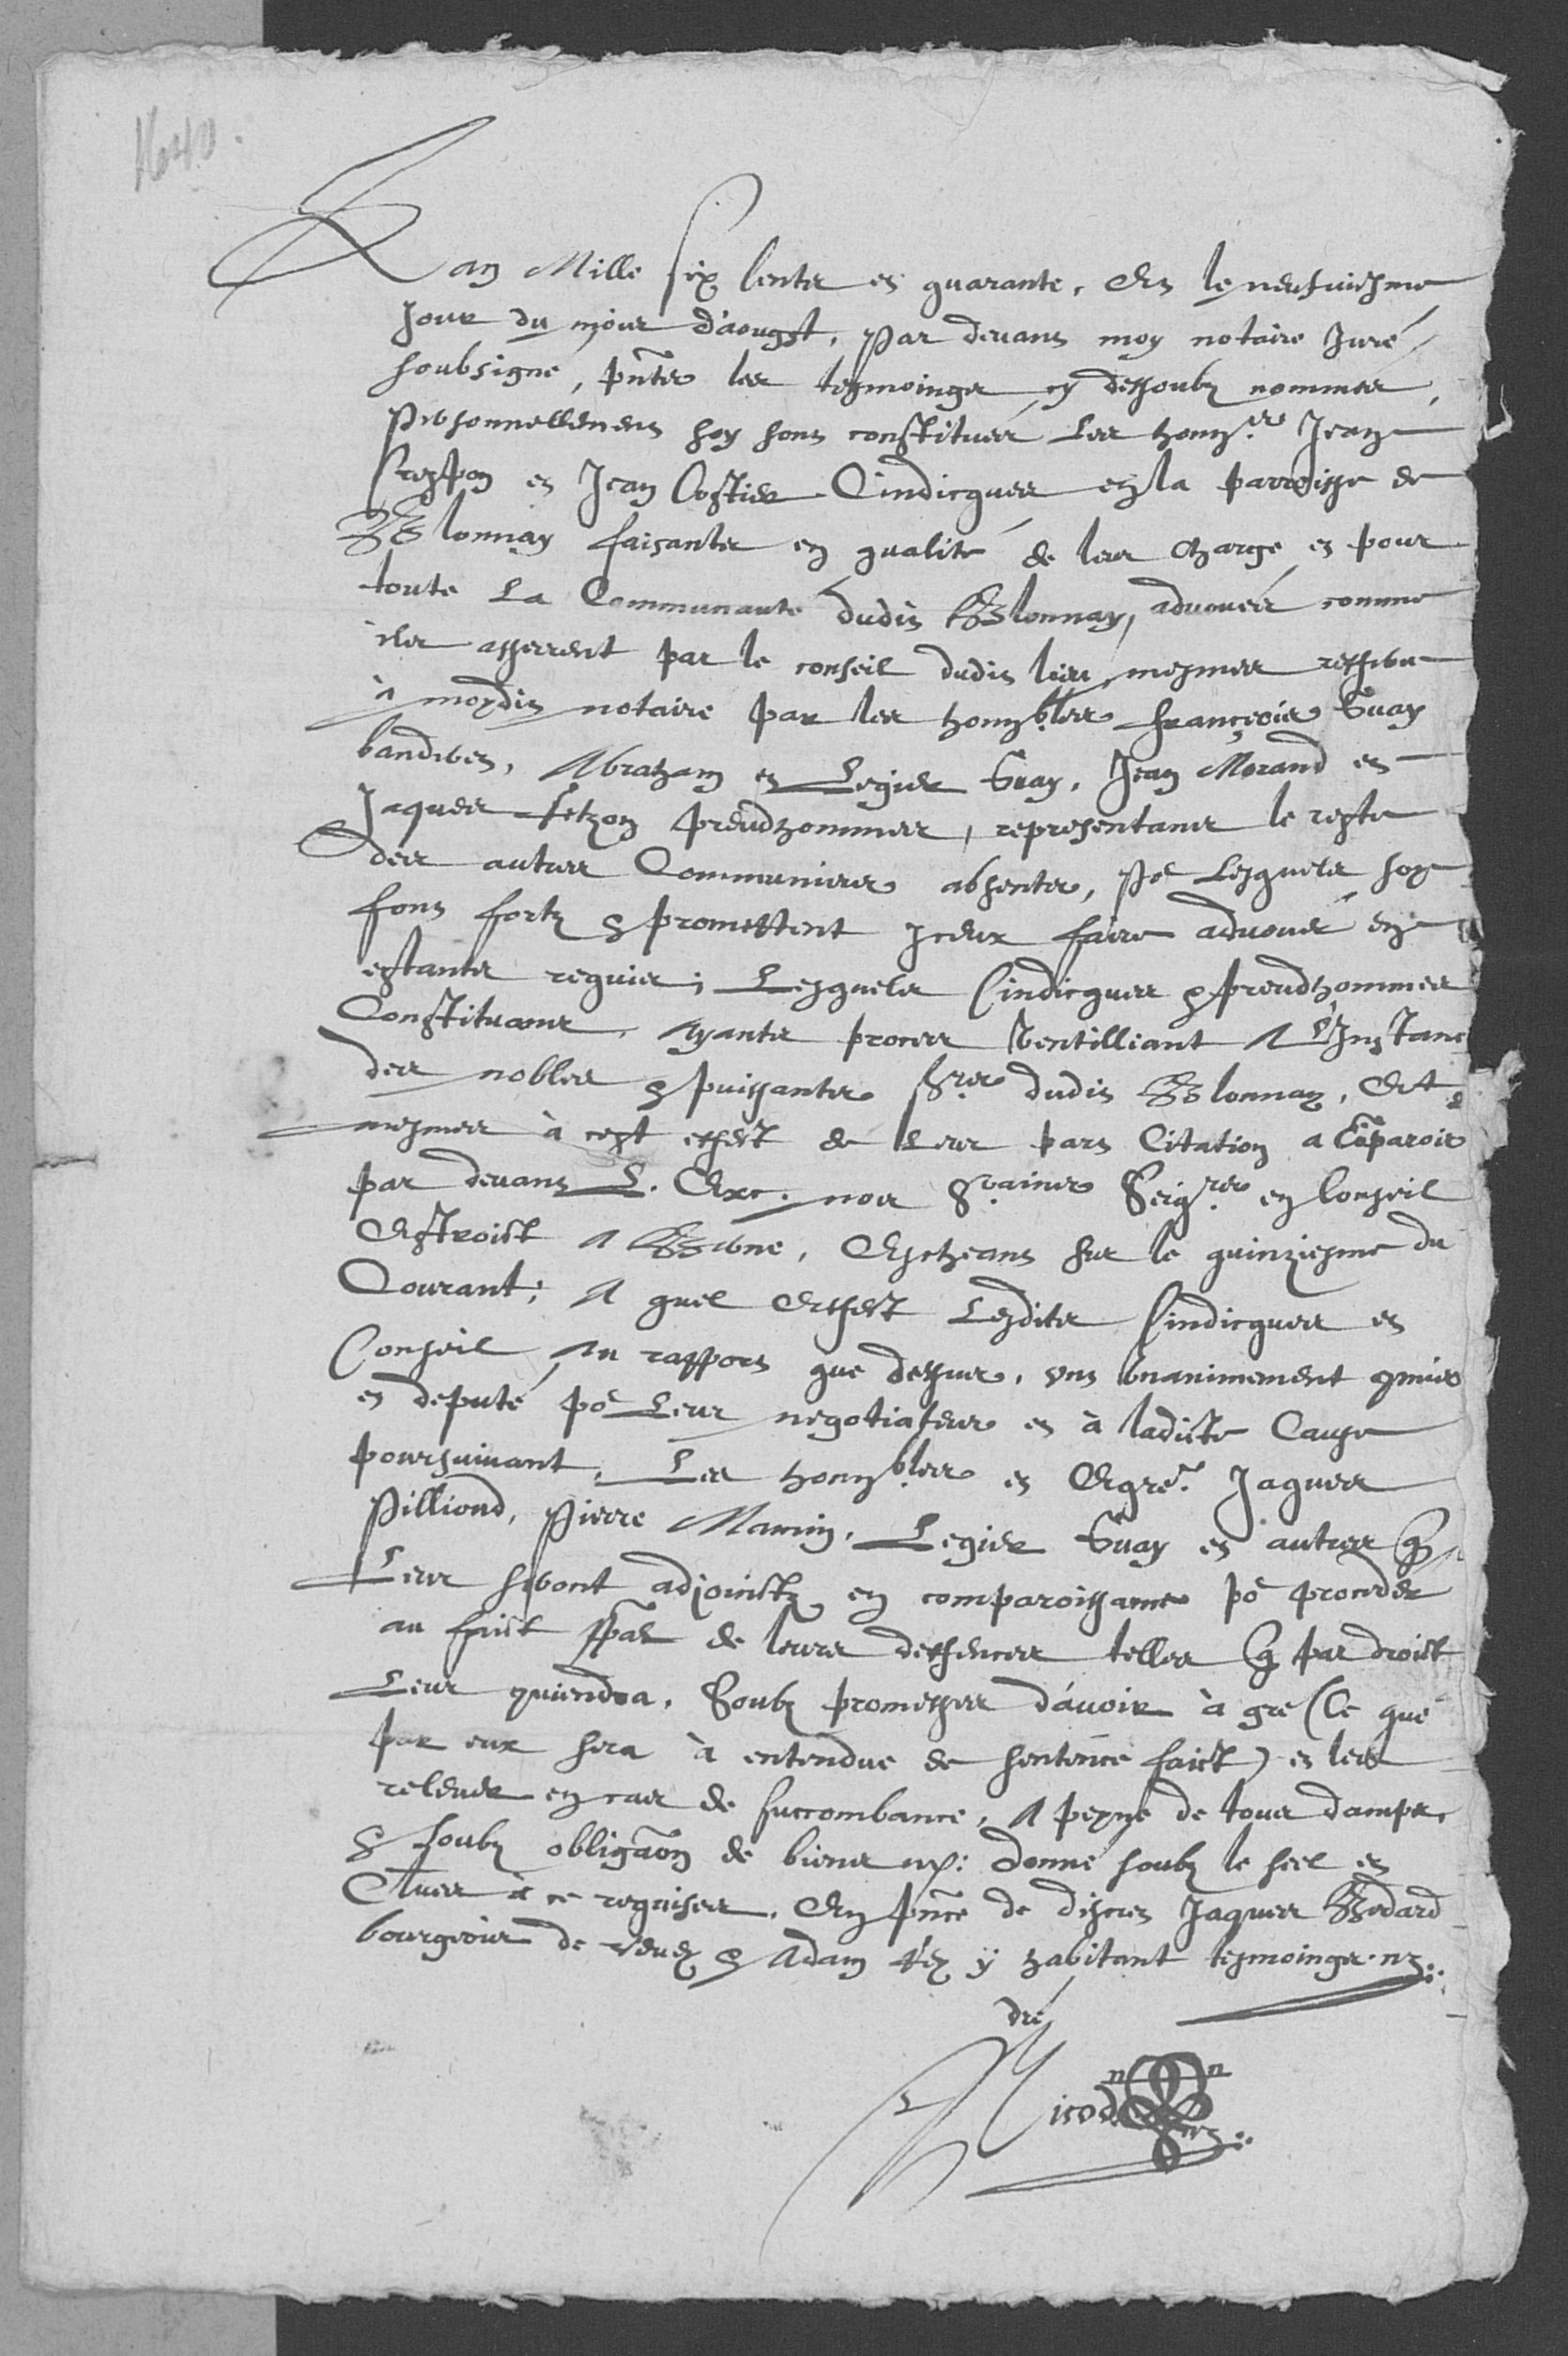 1640.
Lan Mille six centz et quarante, Et le neufuiesme
Jour du mois d'aougst, par deuant moy notaire Juré
soubsigné, pñtz les tesmoings cy dessoubz nommés,
personnellement soy sont constitués Les honn.es Jean
et Jean Costier Cindicques en la parroisse de
Blonnay faisantz en qualité de leur charge et pour
toute La Communauté dudit Blonnay, aduoués comme
ils asserent par le conseil dudit lieu mesmes
à moydit notaire par les honn.bles françois Guay
banderet, Abraham et Legier Guay, Jean Morand et
Jaques preudhommes, representans le reste
des autres Communiers absentz, po.r Lesquels soy
font fortz & promettent iceux faire aduouer en
estantz requis; Lesquels Cindicques & preudhommes
Constituans, Ayantz proces Ventilliant A L'Instanc
des nobles & puissantz S.rs dudit Blonnay, Et
mesmes à cest effect de Leur part Citation a Cõparoir
par deuant L. Exc. nos S.rains Seig.rs en Conseil
Estroict A Berne, Escheant sur le quinziesme du
Courant; A quel Effect Lesditz Cindicques et
Conseil Au rapport que dessus, ont Vnanimement 9mis
et deputé po.r Leur negotiateurs et à ladicte Cause
poursuiuant, Les honn.bles et Egre. Jaques
Pilliond, Pierre Mamin, Legier Guay et autres q̃
Leur seront adjoinctz en comparoissance po.r proceder
au faict de leurs deffences telles q̃ par droict
Leur 9uiendra, Soubz promesses d'auoir à gre (Ce que
par eux sera à entendue de sentence faict) et les
releuer en cas de succombance, A peyne de tous damps
& soubz obligãon de biens donné soubz le seel et
à ce requises, En pñce de discret Jaques Bedard
bourgeois de Veuey & Adam y habitant tesmoings
dré
Nicod